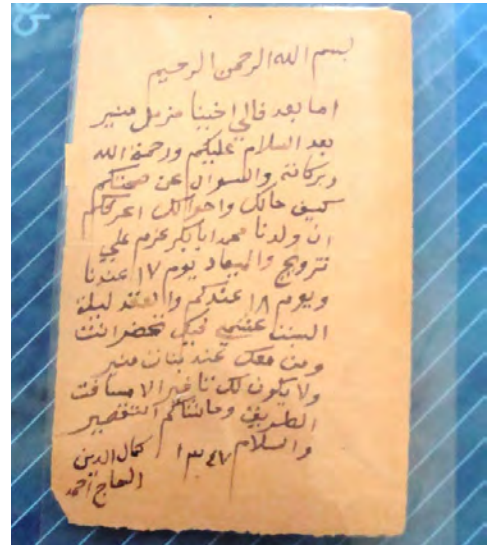 بسم الله الرحمن الرحيم
اما بعد فالي اخينا مزمل منير
بعد السلام عليكم ورحمة الله
وبركاته والسوال عن صحتكم
كيف حالك واحوالك اعرفكم
ان ولدنا محمد ابابكر عزم علي
تزويج والميعاد يوم ١٧ عندنا
ويوم ١٨ عندكم والعقد ليلة
السبت تحضر انت
ومن معك عند بنات منير
ولا يكون لك تاخير الا مسافت
الطريق التقصير
والسلام ١٣٤٧ كمال الدين
الحاج أحمد